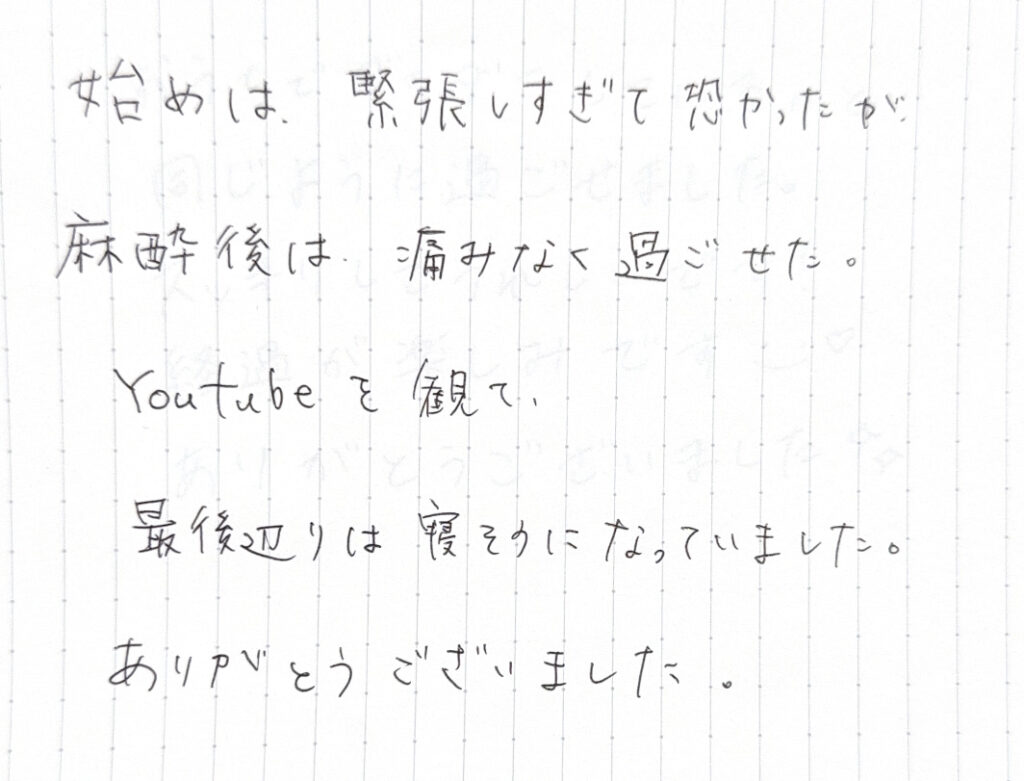 始めは、緊張しすぎて恐かったが、
麻酔後は、痛みなく過ごせた。
Youtubeを観て、
最後辺りは寝そうになっていました。
ありがとうございました。